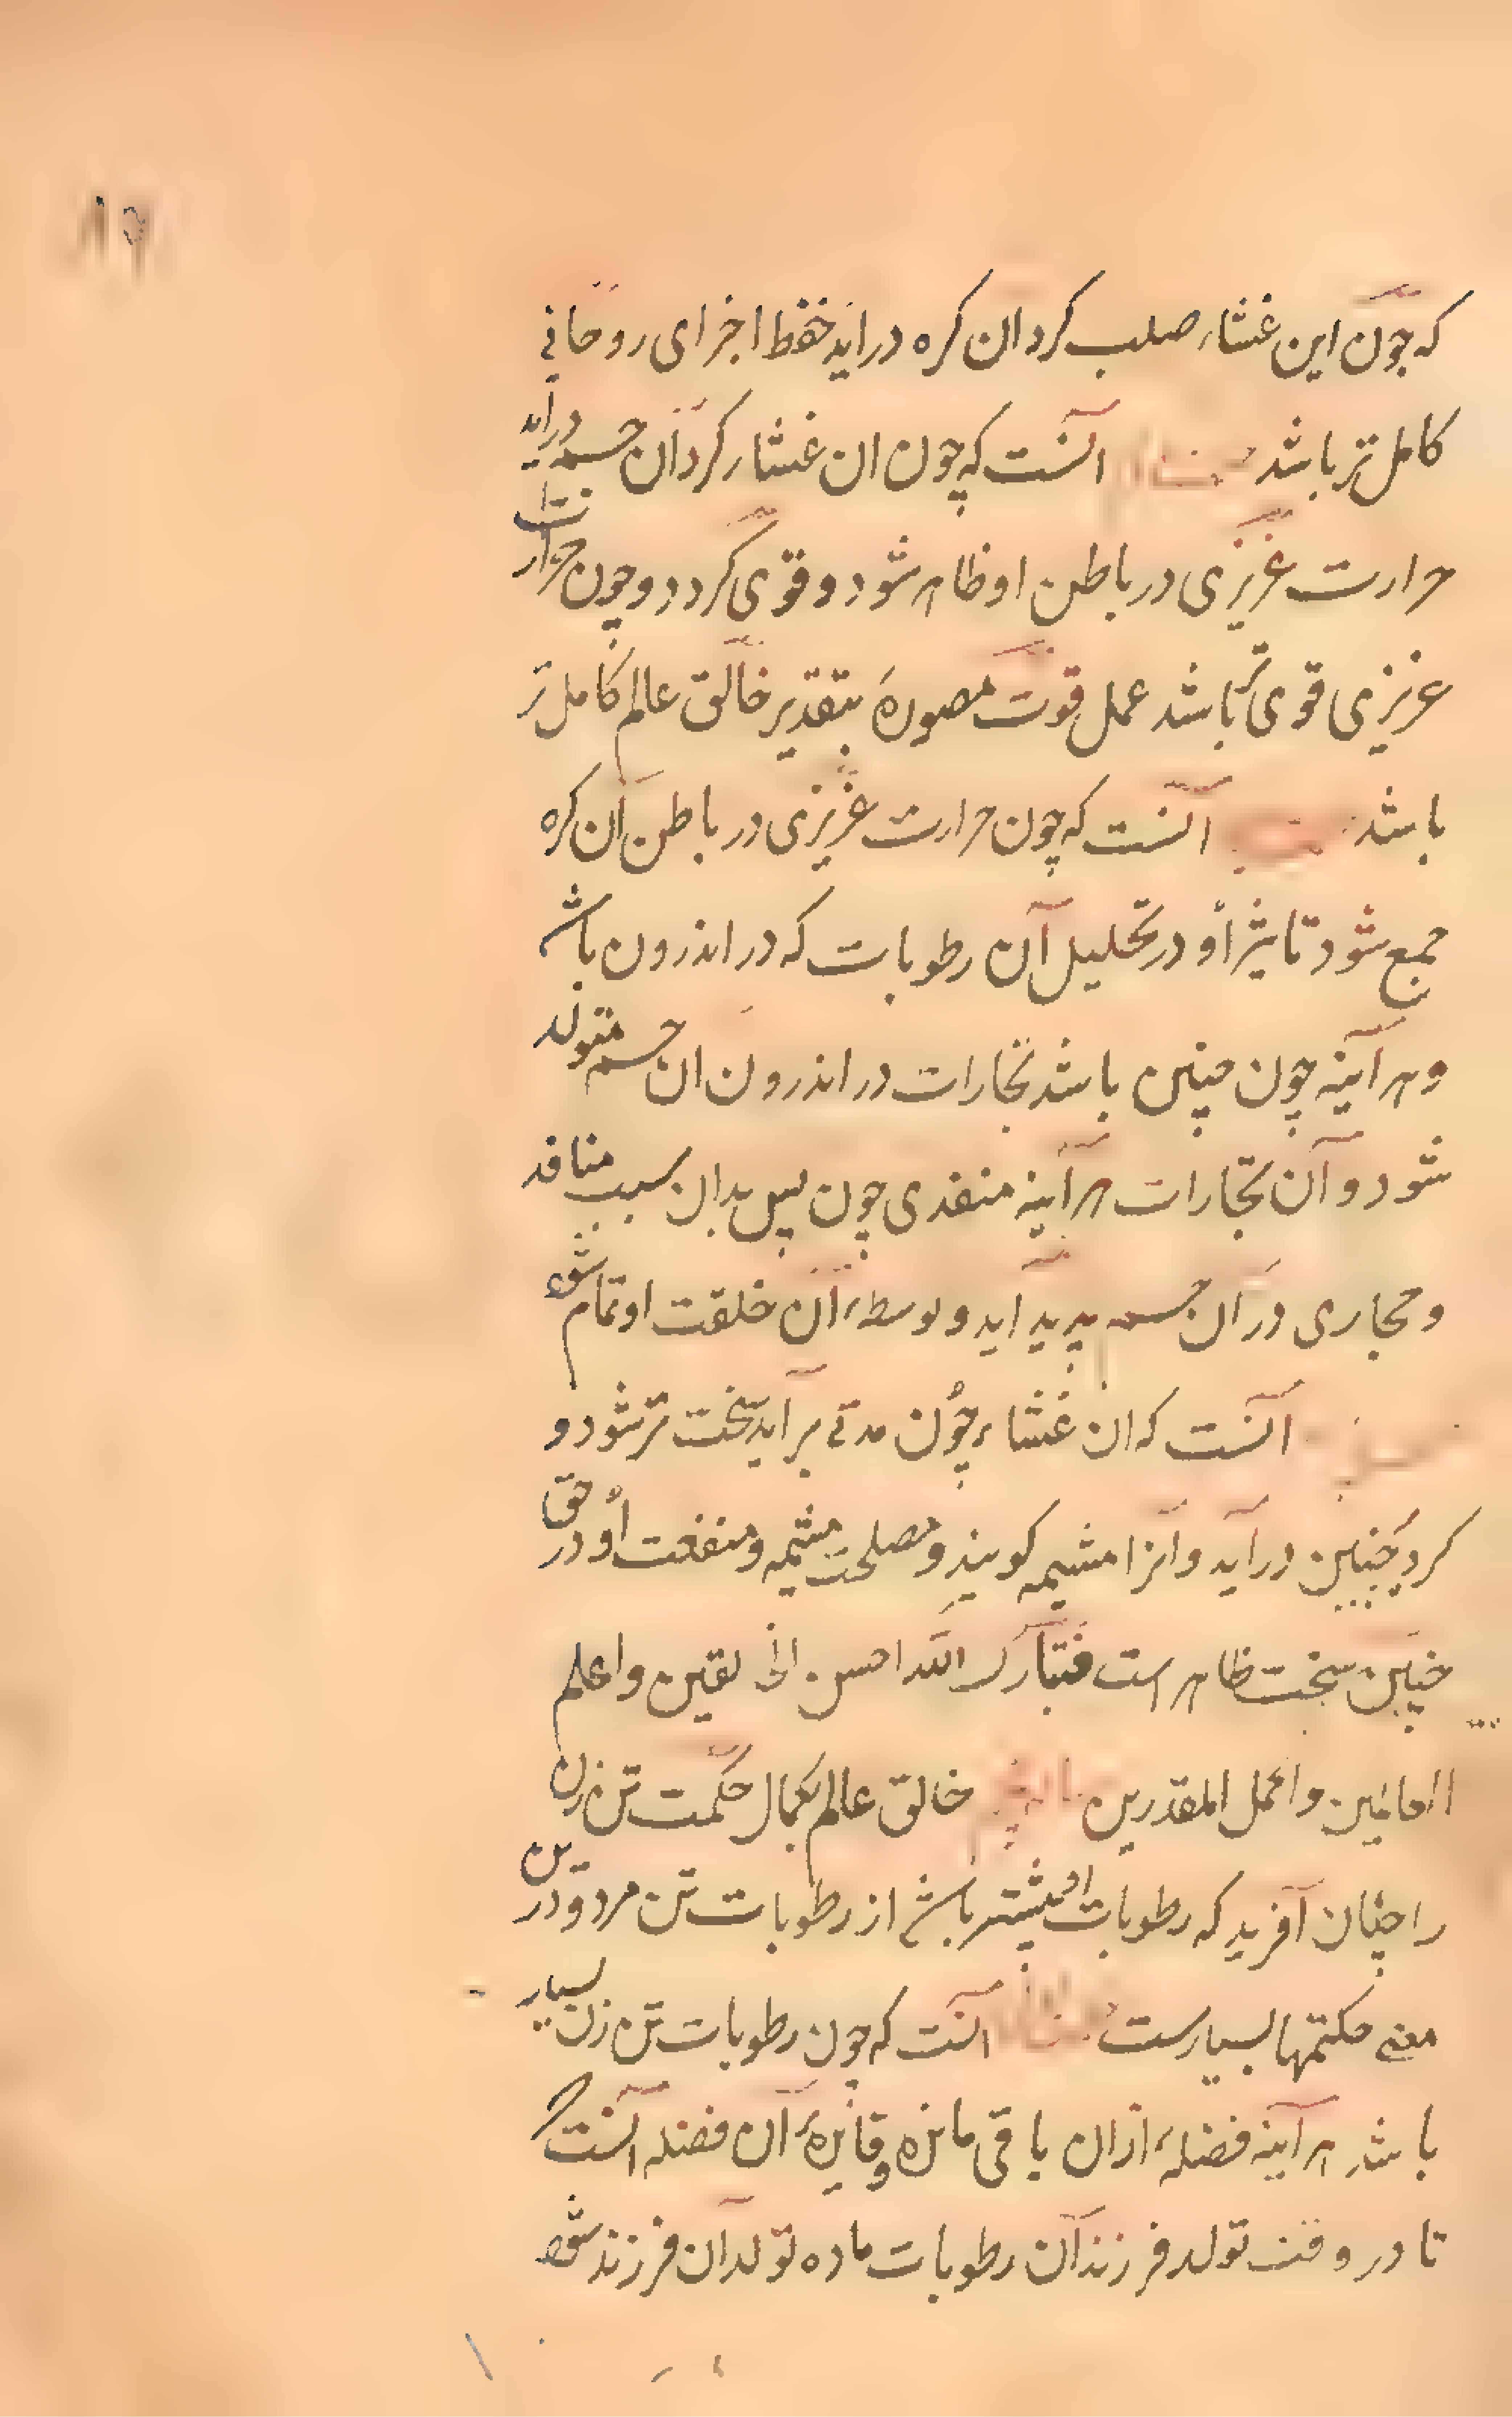 که چون این غشاء صلب کرد ان کره دراید حفظ اجزای روحانی
کامل تر باشد آنست که چون ان غشاء کرد آن جسم دراید
حرارت غریزی در باطن او ظاهر شود و قوی گردد و چون حرارت
غریزی قوی تر باشد عمل قوت مصوره بتقدیر خالق عالم کامل تر
باشد آنست که چون حرارت غریزی در باطن آن کره
جمع شود تاثیر او در تحلیل آن رطوبات که در اندرون باشد
و هر آینه چون چنین باشد بخارات در اندرون ان جسم متولد
شود و آن بخارات هر آینه منفذی چون پس بدان سبب منافذ
و مجاری در آن جسم پدید آید و بوسطهٔ آن خلقت او تمام شود
آنست که ان غشاء چون مدتی بر آید سخت تر شود و
کرد جنین درآید و آنرا مشیمه کویند و مصلحت مشیمه و منفعت او در حق
جنین سخت ظاهر است فتبارک الله احسن الخالقین و اعلم
العالمین و اکمل المقدرین خالق عالم بکمال حکمت تن زن
را چنان آفرید که رطوبات او بیشتر باشد از رطوبات تن مرد و درین
معنی حکمتها بسیارست آنست که چون رطوبات تن زن بسیار
باشد هر آینه فضلهٔ ازان باقی ماند و فایدهٔ آن فضله آنست که
تا در وقت تولد فرزند آن رطوبات ماده تولد آن فرزند شود